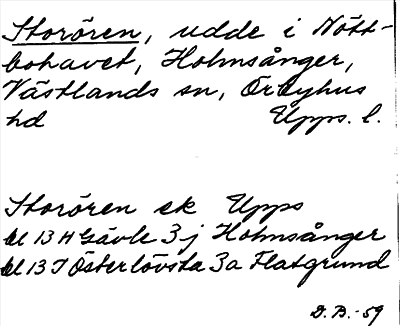 Storören, udde i Nött-
bohavet, Holmsånger,
Västlands sn, Örbyhus
hd Upps. l.
Storören ek Upps
bl 13 H Gävle 3j Holmsånger
bl 13 I Österlövsta 3a Flatgrund
D. B. -59